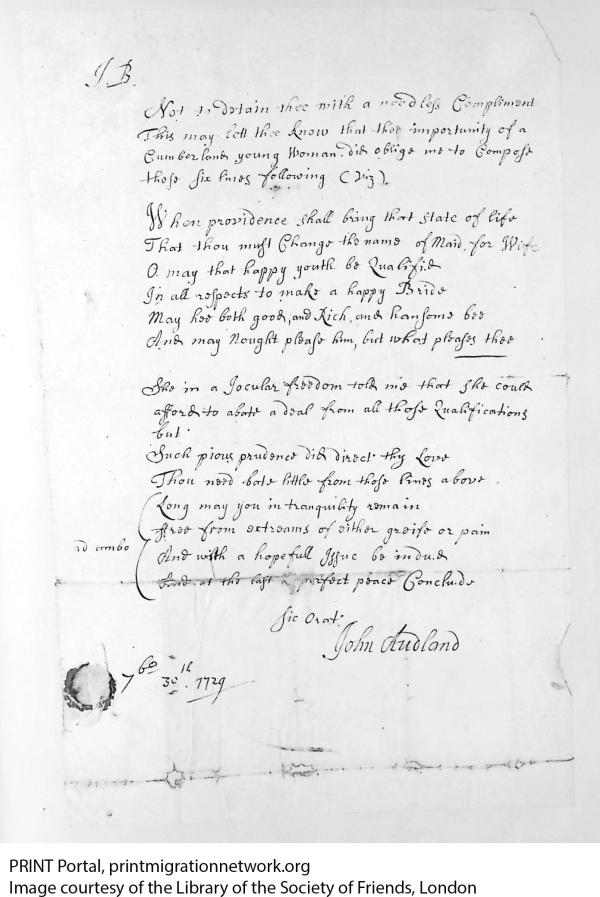 J B.
Not to detain thee with a needless Compliment
This may lett thee know that thee importunity of a
Cumberland young Woman did oblige me to Compose
those six lines following (Viz).
When providence shall bring that state of life
That thou must Change the name of Maid, for Wife
O may that happy youth be Qualified
In all respects to make a happy Bride
May hee both good, and Rich, and hansome bee
And may Nought please him, but what pleases thee
She in a Jocular freedom told me that she could
afford to abate a deal from all those Qualifications
but
Such pious prudence did direct thy Love
Thou need bate little from those lines above.
Long may you in tranquility remain
ffree from extreams of either greife or pain
ad ambo
And with a hopefull Issue be indued
And at the last a perfect peace Conclude
Sic Orat
John Audland
7bo 30th 1729
PRINT Portal, printmigrationnetwork.org
Image courtesy of the Library of the Society of Friends, London